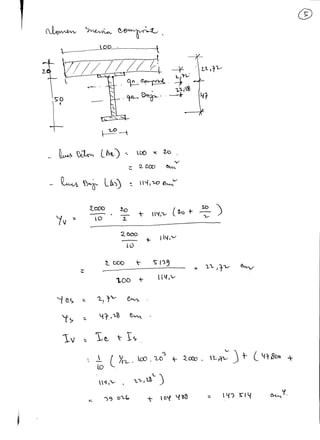 5
Momen Inersia Composit.
100
20
50
20
gn. Composit
gn. Baja
22,72
47
- Luas Beton (Ac) = 100 x 20
= 2 000 cm²
- Luas Baja (As) = 114,20 cm²
Yv = 2000/10 . 20/2 + 114,2 (20 + 50/2)
2000/10 + 114,2
= 2 000 + 5139 = 22,72 cm
200 + 114,2
Ycs = 2,72 cm.
Ys = 47,28 cm.
Iv = Ic + Is
= 1/10 ( 1/12 . 100 . 20³ + 2000 . 12,72² ) + ( 47800 +
114,2 . 22,28² )
= 39 026 + 104 488 = 143 514 cm⁴.